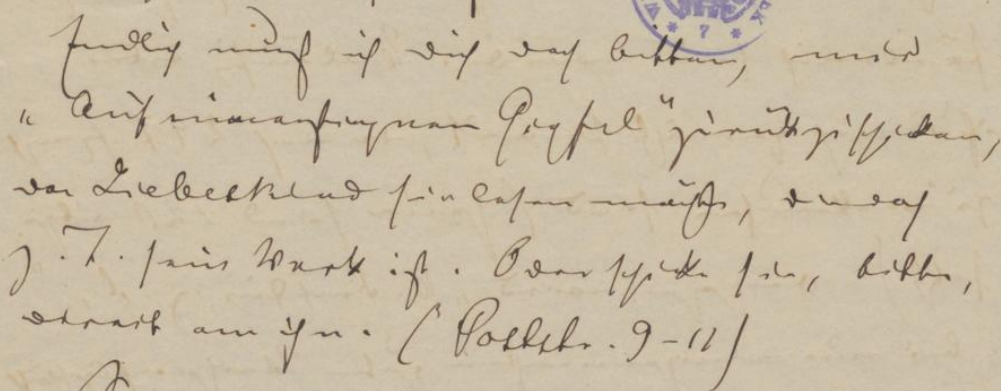 Endlich muß ich dich doch bitten, mir
„Auf Gipfel" zurückzuschicken,
da Liebeskind sie lesen möchte, die doch
z. T. sein Werk ist. Oder schicke sie, bitte,
direkt an ihn. (Poststr. 9-11)